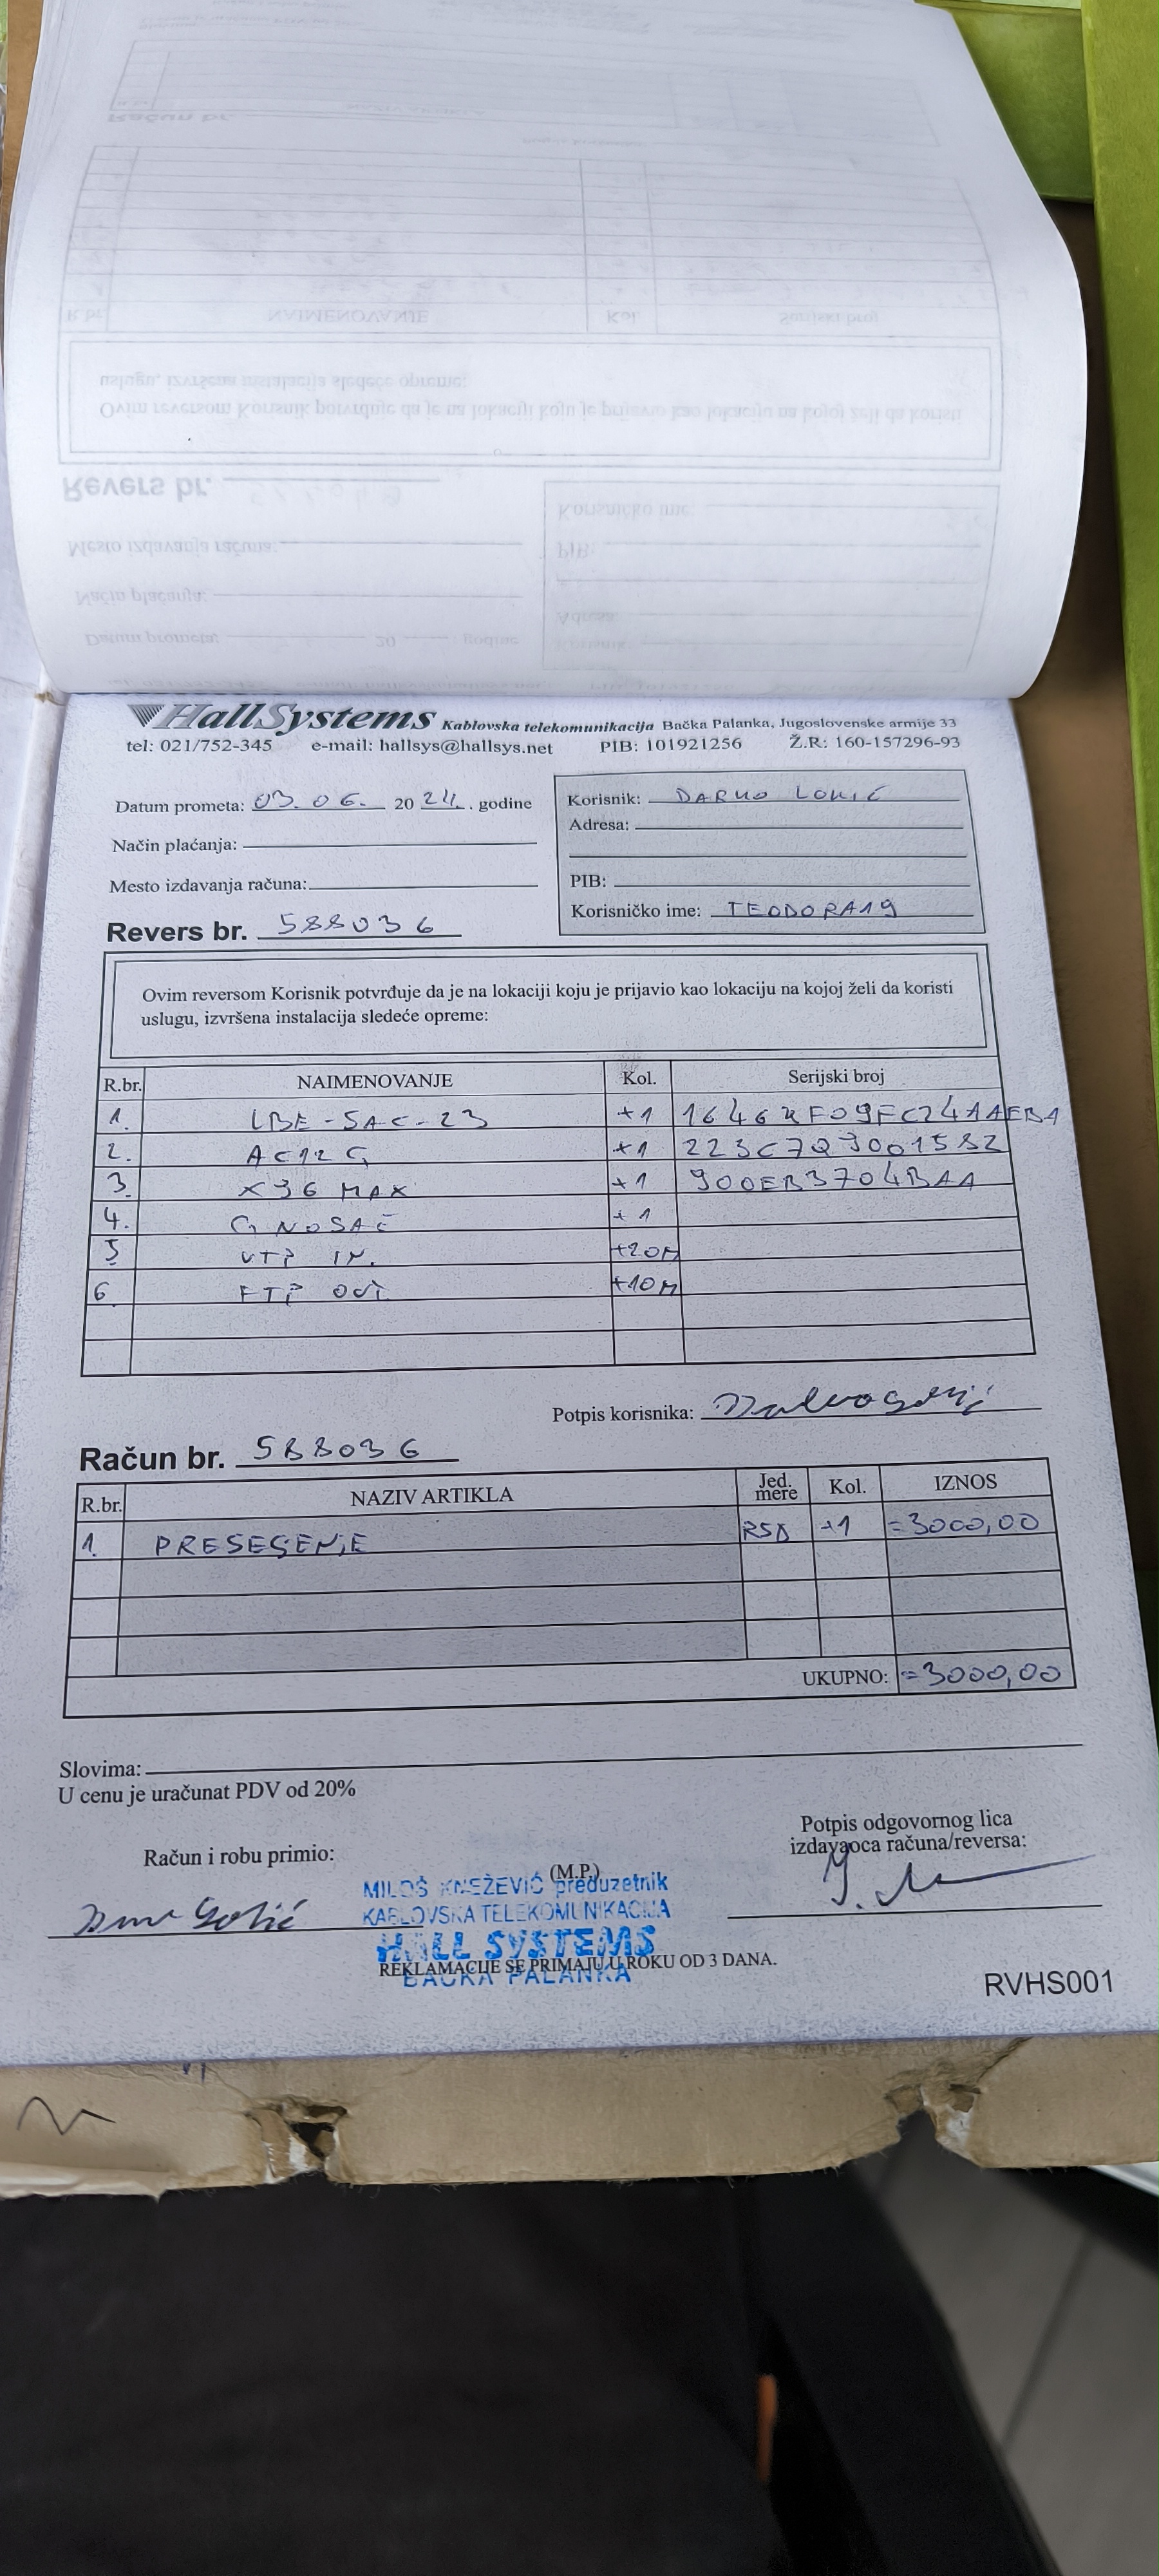 HallSystems Kablovska telekomunikacija Bačka Palanka, Jugoslovenske armije 33
tel: 021/752-345 e-mail: hallsys@hallsys.net PIB: 101921256 Ž.R: 160-157296-93
Datum prometa: 03.06. 2024. godine
Način plaćanja:
Mesto izdavanja računa:
Revers br. 588036
Korisnik: DARKO LOKIĆ
Adresa:
PIB:
Korisničko ime: TEODORA19
Ovim reversom Korisnik potvrđuje da je na lokaciji koju je prijavio kao lokaciju na kojoj želi da koristi
uslugu, izvršena instalacija sledeće opreme:
R.br. NAIMENOVANJE Kol. Serijski broj
1. LBE-5AC-23 +1 1646KF09FC24AAEBA
2. AC12G +1 223C7Q3001582
3. X96 MAX +1 900EB3704BAA
4. G NOSAČ +1
5 UTP IN. +20M
6. FTP OUT +10M
Potpis korisnika:
Račun br. 588036
R.br. NAZIV ARTIKLA Jed. mere Kol. IZNOS
1. PRESEGENJE RSD +1 =3000,00
UKUPNO: =3000,00
Slovima:
U cenu je uračunat PDV od 20%
Račun i robu primio:
(M.P.)
Potpis odgovornog lica
izdavaoca računa/reversa:
MILOŠ KNEŽEVIĆ preduzetnik
KABLOVSKA TELEKOMUNIKACIJA
HALL SYSTEMS
BAČKA PALANKA
REKLAMACIJE SE PRIMAJU U ROKU OD 3 DANA.
RVHS001